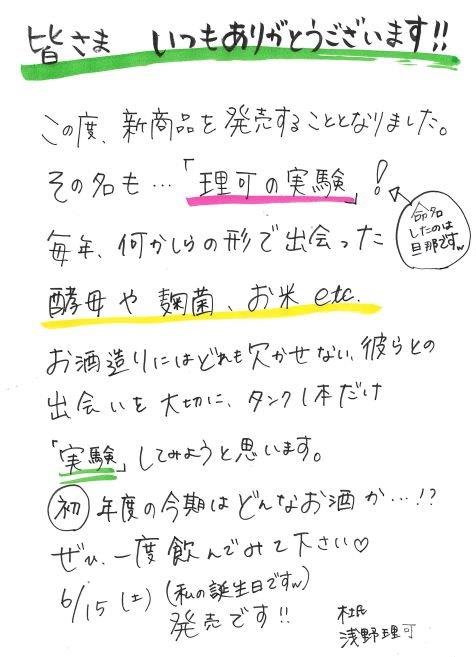 皆さま いつもありがとうございます!!
この度、新商品を発売することとなりました。
その名も…「理可の実験」!
命名
したのは
旦那ですw
毎年、何かしらの形で出会った
酵母や麹菌、お米 etc.
お酒造りにはどれも欠かせない、彼らとの
出会いを大切に、タンク1本だけ
「実験」してみようと思います。
初年度の今期はどんなお酒か…!?
ぜひ、一度飲んでみて下さい♡
6/15(土)(私の誕生日ですw)
発売です!!
杜氏
浅野理可